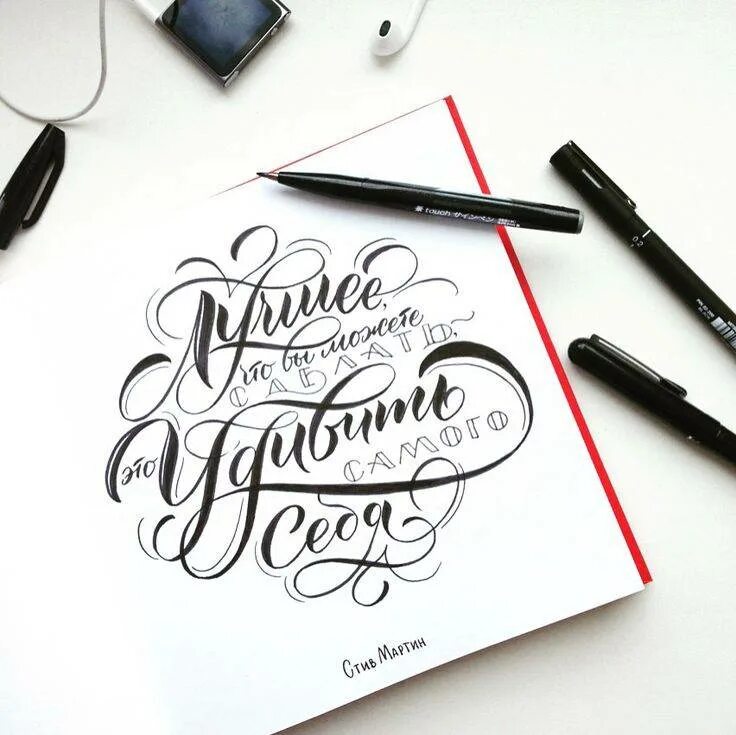 Лучшее,
что вы можете
СДЕЛАТЬ,
это Удивить
САМОГО
Себя
Стив Мартин
touch サインペン
0.2